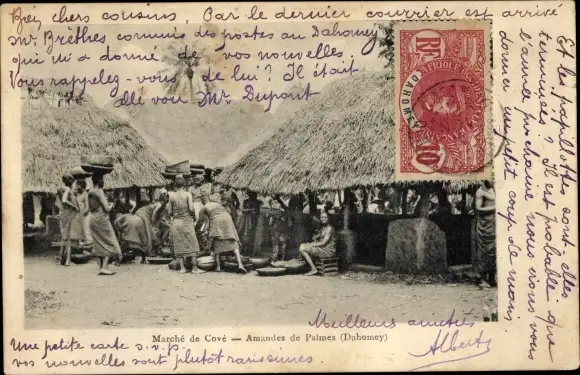 Bien chers cousins, Par le dernier courrier est arrivé
Mr. Brèthes commis des postes au Dahomey
qui m'a donné de vos nouvelles.
Vous rappelez-vous de lui? Il était
allé vous Mr. Dupont
Et les papillottes sont-elles
terminées? Il est probable que
l'année prochaine nous vous
donner un petit coup de main.
AFRIQUE OCCIDENTALE FRANÇAISE
DAHOMEY
10
Marché de Cové — Amandes de Palmes (Dahomey)
Meilleurs amitiés
Albert
Une petite carte s.v.p.
vos nouvelles sont plutôt rarissimes.